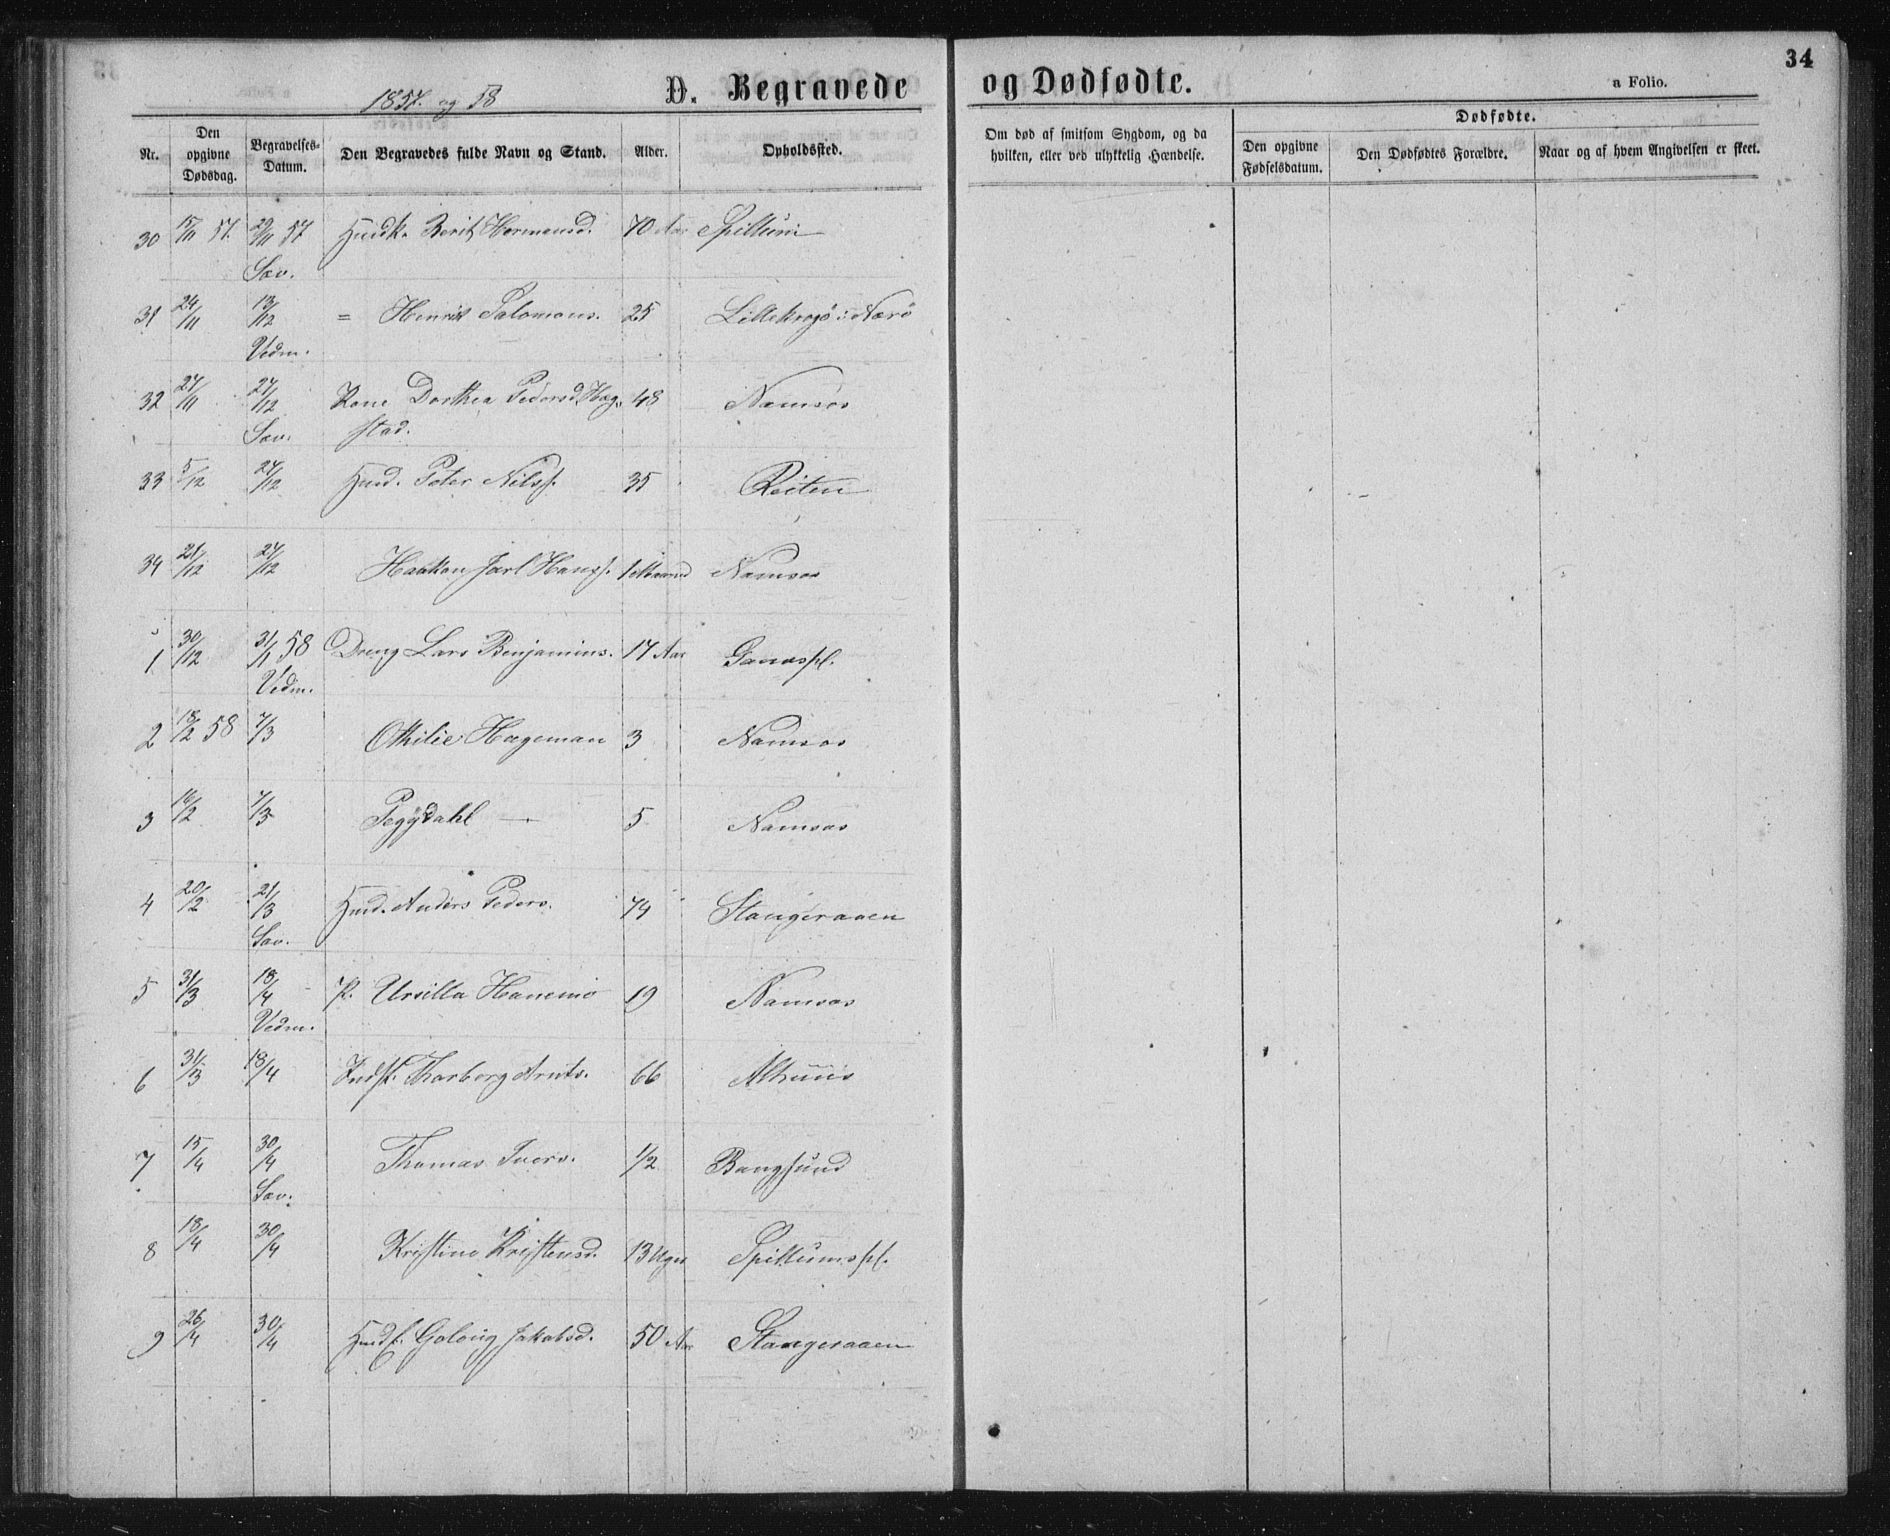 34
1857. og 58
D. Begravede og Dødfødte.
a Folio.
Nr.
Den opgivne Dødsdag.
Begravelses-Datum.
Den Begravedes fulde Navn og Stand.
Alder.
Opholdssted.
Om død af smitsom Sygdom, og da hvilken, eller ved ulykkelig Hændelse.
Dødfødte.
Den opgivne Fødselsdatum.
Den Dødfødtes Forældre.
Naar og af hvem Angivelsen er skeet.
30 15/11 57. 29/11 57 Berit Hermansd. 70 Aar Spillum
Sæv.
31 24/11 13/12 = Henrik Salomons. 25 Lillekrogø i Nærø
Vedm.
32 27/11 27/12 Kone Dorthea Pedersd. Hæg- 48 Namsos
Sæv. stad.
33 5/12 27/12 Husd. Peter Nilss. 35 Reiten
34 21/12 27/12 Haakon Jarl Hanss. 1 Maaned Namsos
1 30/12 31/1 58 Dreng Lars Benjamins. 17 Aar
Vedm.
2 18/2 58 7/3 Othilie Hageman 3 Namsos
3 16/2 7/3 Peggy Dahl — 5 Namsos
4 20/2 21/3 Husd. Anders Peders. 74 Stangeraaen
Sæv.
5 31/3 18/4 P. Ursilla Hanemo 19 Namsos
Vedm.
6 31/3 18/4 Indsk. Tharberg Arnts. 66 Alhuus
7 15/4 30/4 Thomas Ivers. 1/2 Bangsund
Sæv.
8 18/4 30/4 Kristine Kristensd. 13 Uger Spillumspl.
9 26/4 30/4 Goloug Jakobsd. 50 Aar Stangeraaen